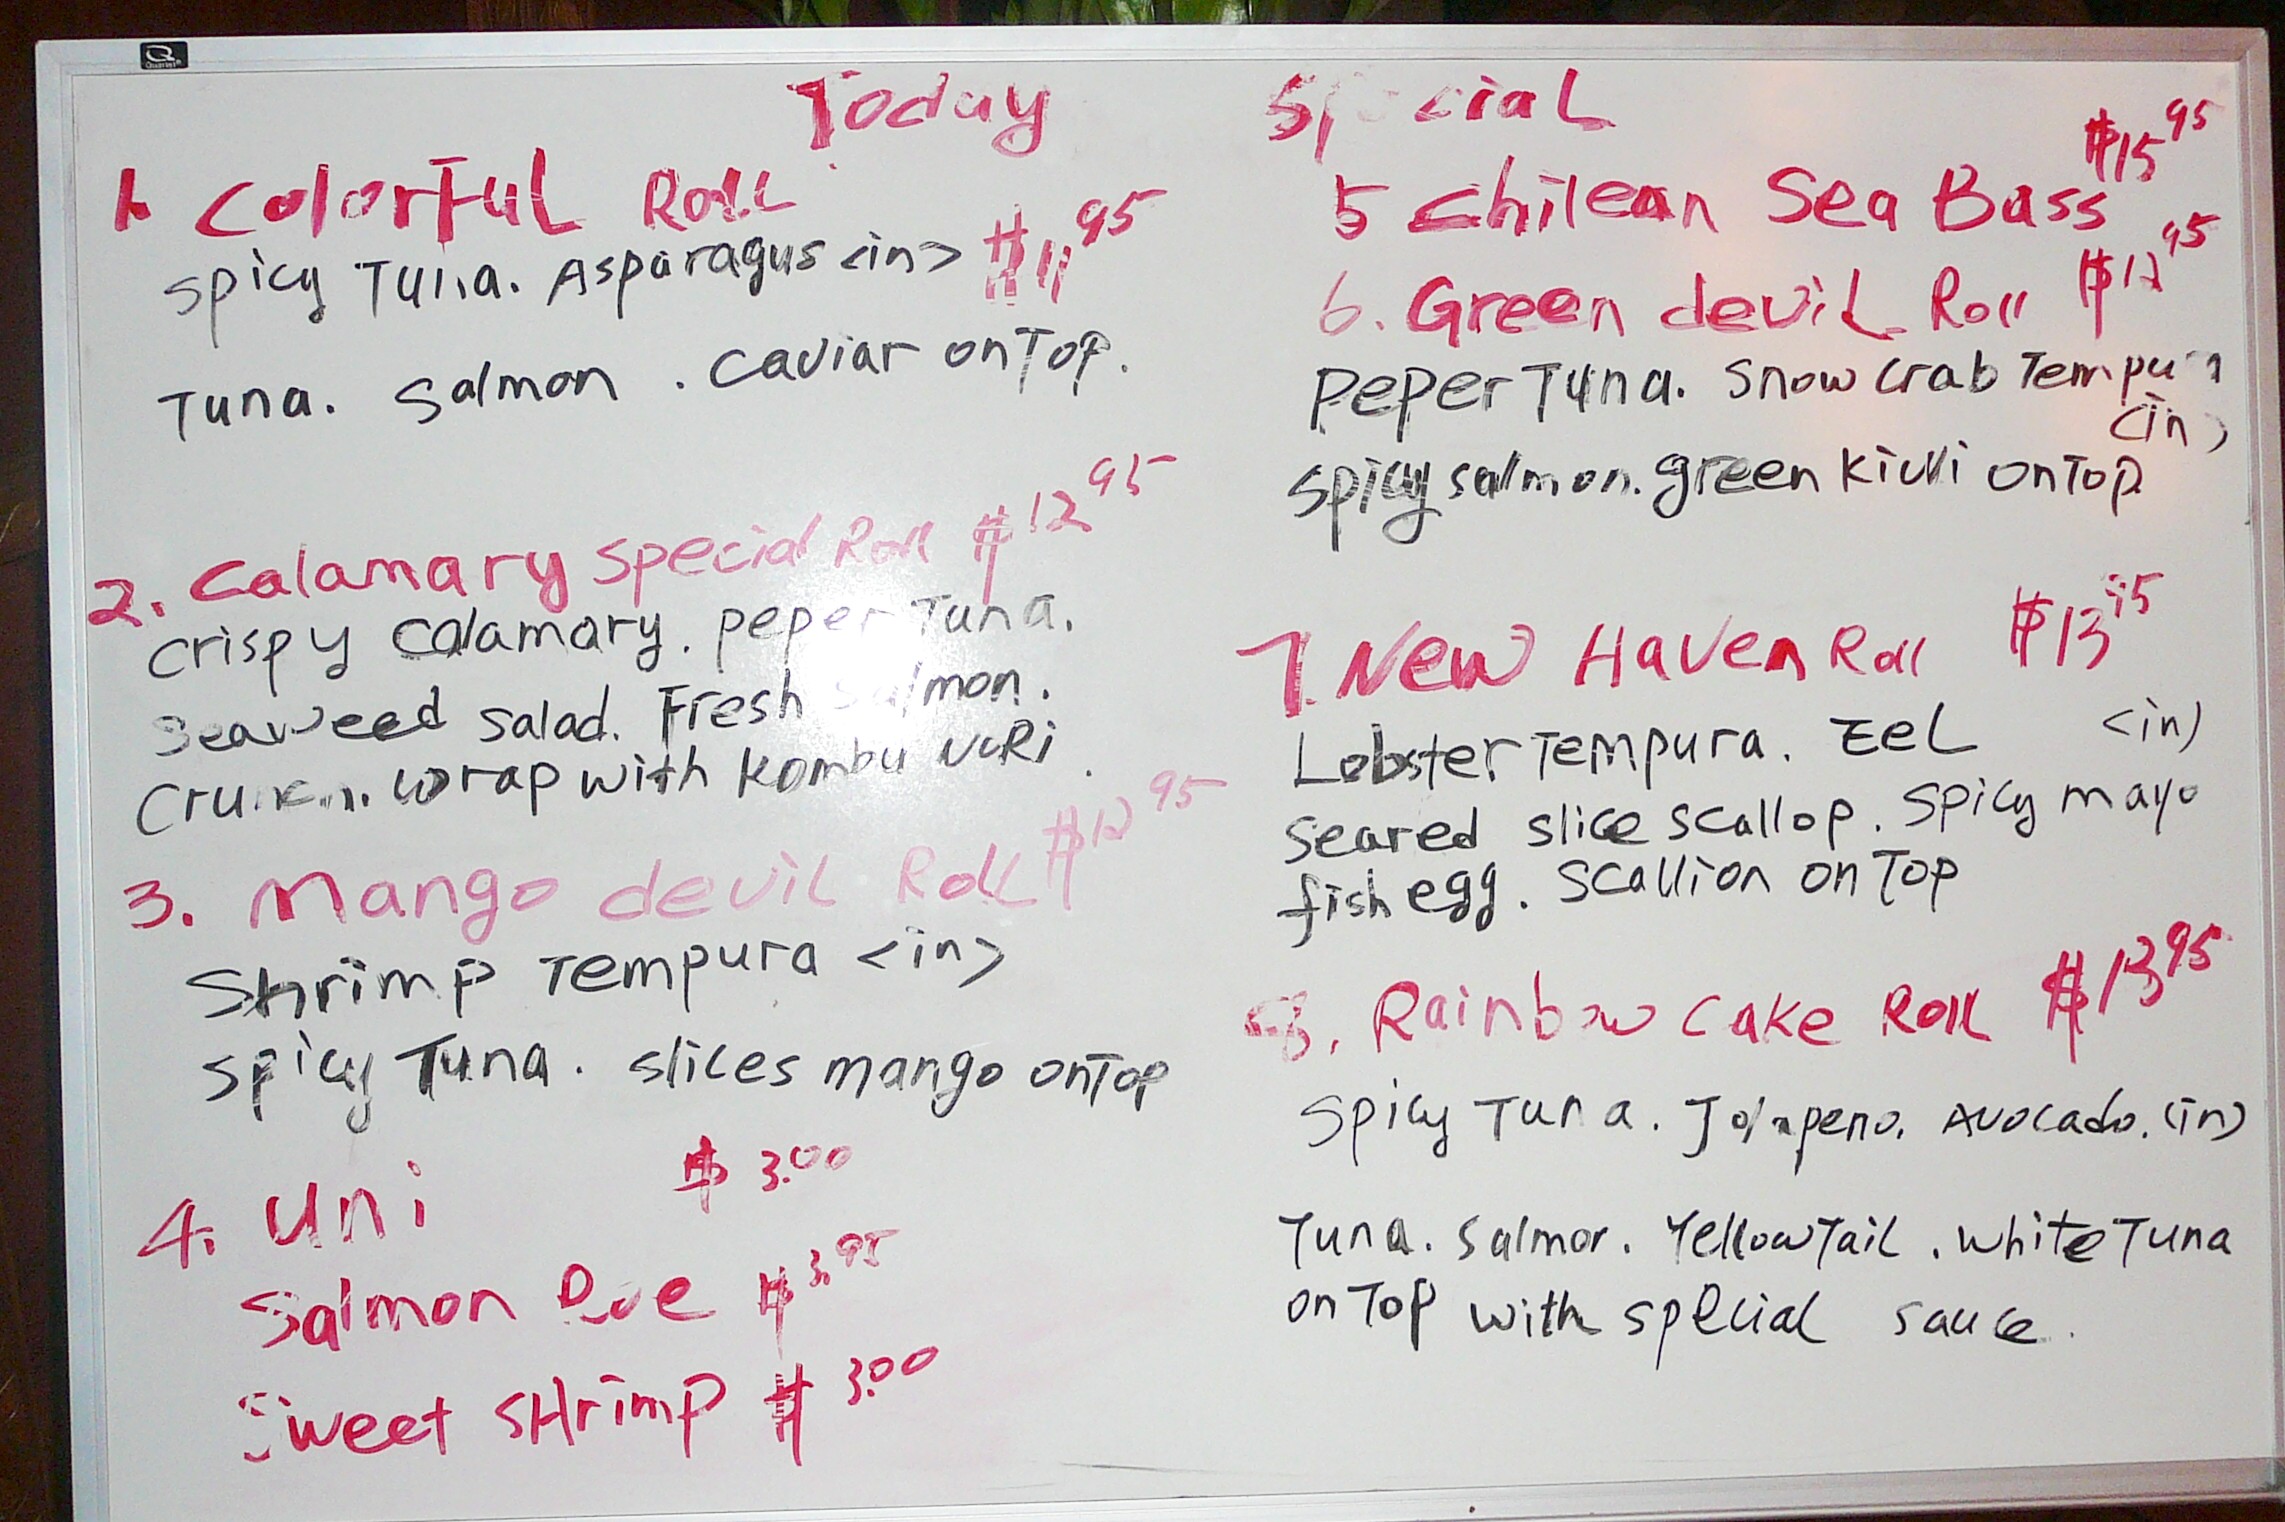 Quartet
Today Special
1. Colorful Roll
Spicy Tuna. Asparagus <in> $11.95
Tuna. Salmon. Caviar on Top.
2. Calamary Special Roll $12.95
Crispy Calamary. Peper Tuna.
Seaweed Salad. Fresh Salmon.
Crunch. Wrap with Kombu Nori.
3. Mango devil Roll $12.95
Shrimp Tempura <in>
Spicy Tuna. slices mango on Top
4. Uni $3.00
Salmon Roe $3.95
Sweet Shrimp $3.00
5 Chilean Sea Bass $15.95
6. Green devil Roll $12.95
Peper Tuna. Snow Crab Tempura
<in>
Spicy salmon. green kiwi on Top
7. New Haven Roll $13.95
Lobster Tempura. Eel <in>
Seared slice scallop. Spicy mayo
fish egg. Scallion on Top
8. Rainbow Cake Roll $13.95
Spicy Tuna. Jolapeno. Avocado. <in>
Tuna. Salmon. Yellow Tail. White Tuna
on Top with special sauce.